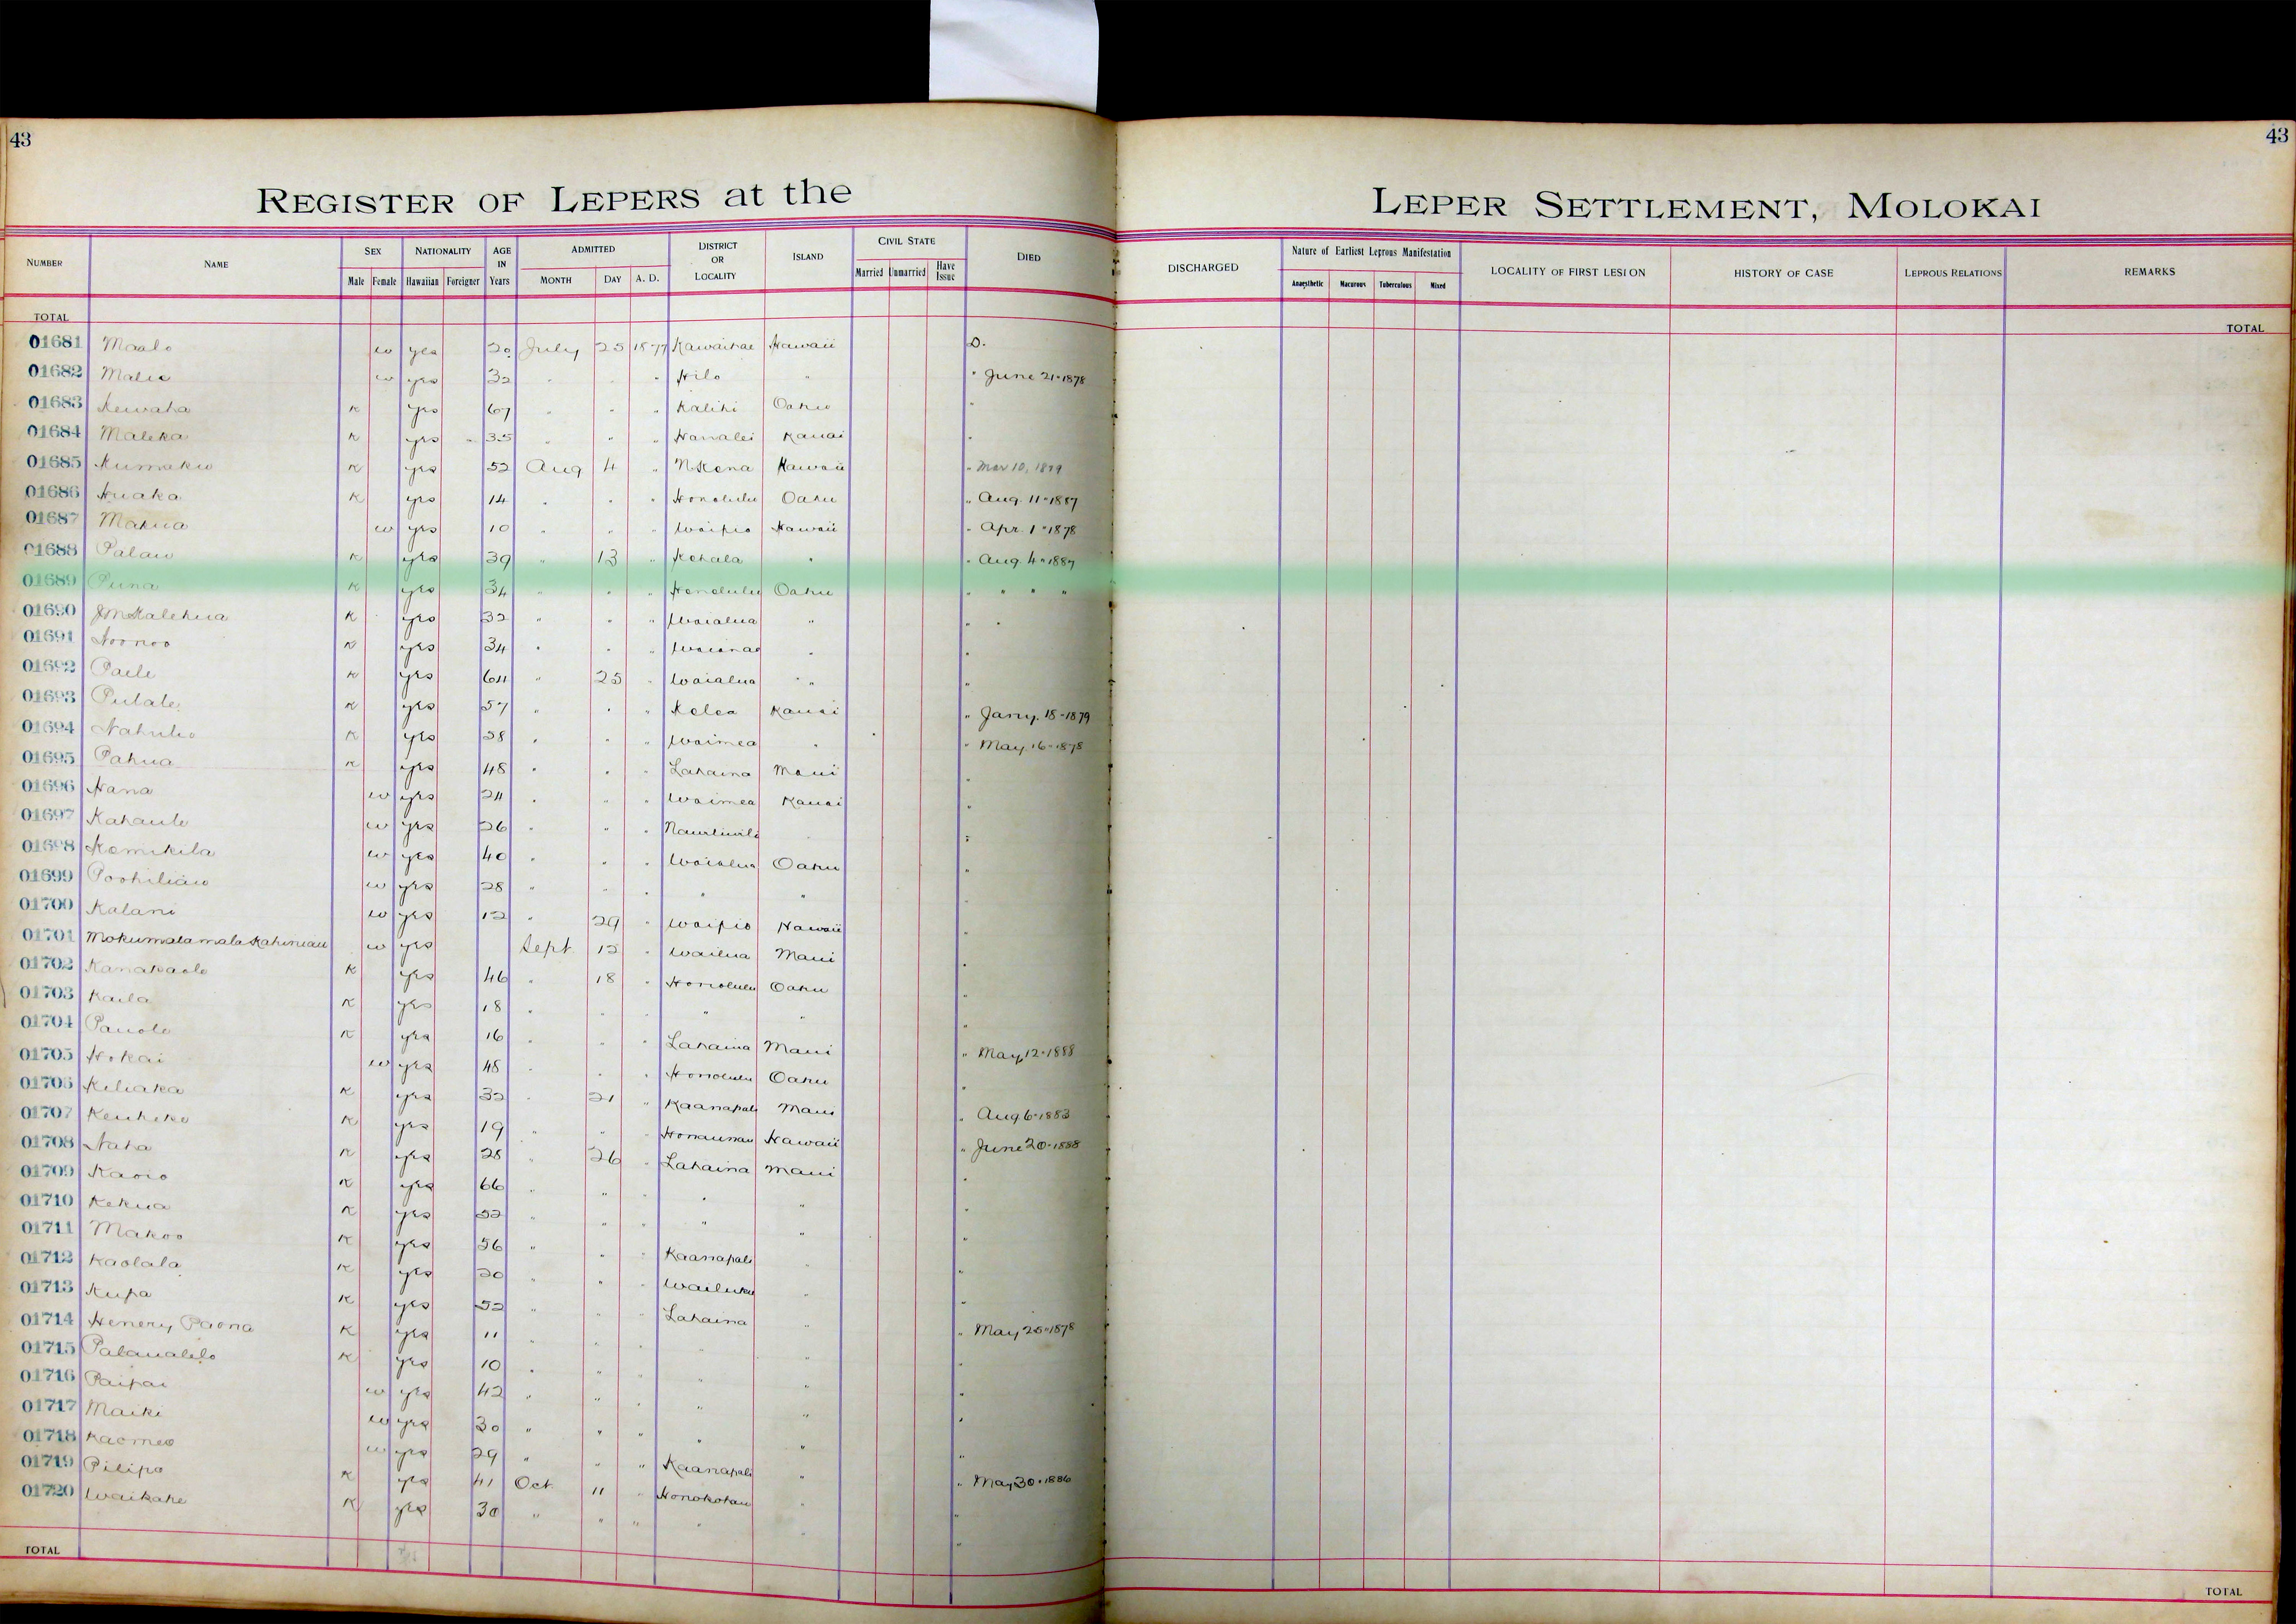 43
43
REGISTER OF LEPERS at the
LEPER SETTLEMENT, MOLOKAI
NUMBER NAME SEX NATIONALITY AGE IN Years ADMITTED DISTRICT OR LOCALITY ISLAND CIVIL STATE DIED DISCHARGED Nature of Earliest Leprous Manifestation LOCALITY OF FIRST LESION HISTORY OF CASE LEPROUS RELATIONS REMARKS
Male Female Hawaiian Foreigner MONTH DAY A. D. Married Unmarried Have Issue Anaesthetic Macurous Tuberculous Mixed
TOTAL TOTAL
01681 Maalo w yes 20 July 25 1877 Kawaihae Hawaii D.
01682 w yes 32 " " " Hilo " " June 21-1878
01683 Kewaha K yes 67 " " " Kalihi Oahu "
01684 Maleka K yes 35 " " " Hanalei Kauai "
01685 Kumaku K yes 52 Aug 4 " N Kona Hawaii " Mar 10, 1879
01686 Huaka K yes 14 " " " Honolulu Oahu " Aug. 11-1887
01687 Mahua w yes 10 " " " Waipio Hawaii " Apr. 1-1878
01688 Palau K yes 39 " 13 " Kohala " " Aug. 4-1887
01689 Puna K yes 34 " " " Honolulu Oahu " " " "
01690 K yes 32 " " " Waialua " " "
01691 K yes 34 " " " Waianae " "
01692 K yes 64 " 25 " Waialua " " "
01693 Pulale K yes 57 " " " Kolea Kauai " Jany. 18-1879
01694 K yes 28 " " " Waimea " " May. 16-1878
01695 Pahua K yes 48 " " " Lahaina Maui "
01696 Hana w yes 24 " " " Waimea Kauai "
01697 Kahaule w yes 26 " " " "
01698 Kamikila w yes 40 " " " Waialua Oahu "
01699 w yes 28 " " " " " "
01700 Kalani w yes 12 " 29 " Waipio Hawaii "
01701 w yes Sept. 12 " Wailua Maui "
01702 K yes 46 " 18 " Honolulu Oahu "
01703 Kaila K yes 18 " " " " " "
01704 Pauole K yes 16 " " " Lahaina Maui " May, 12-1888
01705 Hokai w yes 48 " " " Honolulu Oahu "
01706 Keliaka K yes 32 " 21 " Kaanapali Maui " Aug 6-1883
01707 K yes 19 " " " Honaunau Hawaii " June 20-1888
01708 Naha K yes 28 " 26 " Lahaina Maui "
01709 K yes 66 " " " " " "
01710 Kekua K yes 52 " " " " " "
01711 Makoo K yes 56 " " " Kaanapali " "
01712 Kaolala K yes 20 " " " Wailuku " "
01713 Kupa K yes 52 " " " Lahaina " " May 25-1878
01714 Henery Paona K yes 11 " " " " " "
01715 Palaualelo K yes 10 " " " " " "
01716 Paipai w yes 42 " " " " " "
01717 Maiki w yes 30 " " " " " "
01718 w yes 29 " " " Kaanapali " " May 30-1886
01719 Pilipo K yes 41 Oct. 11 " Honokohau " "
01720 Waikahe K yes 30 " " " " " "
TOTAL TOTAL